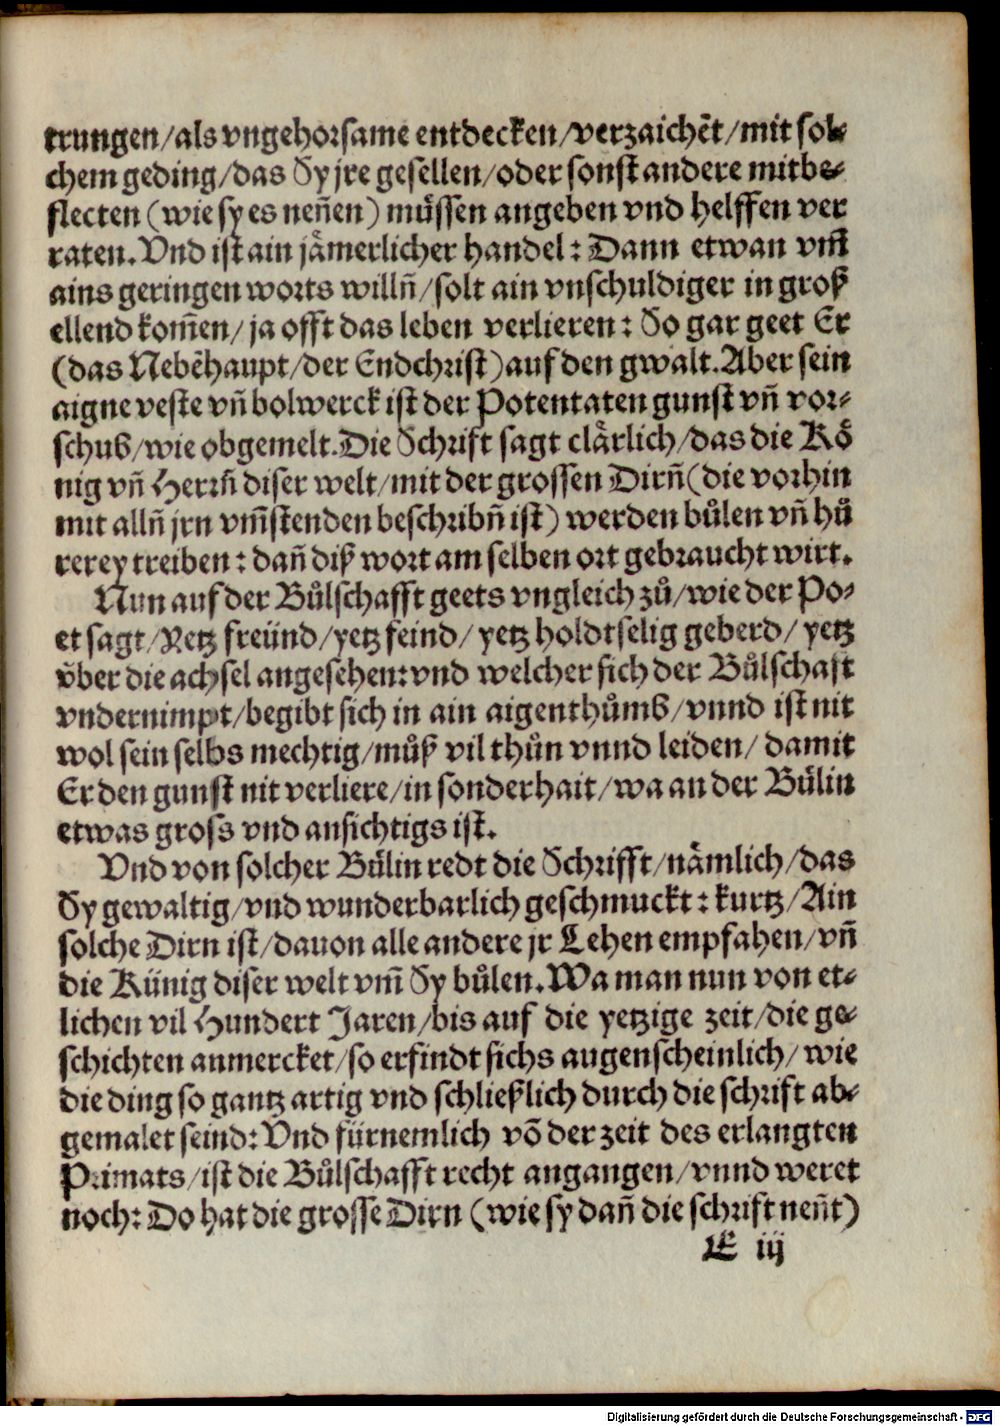 trungen/als vngehorsame entdecken/verzaichēt/mit sol⸗
chem geding/das Sy jre gesellen/oder sonst andere mitbe⸗
flecten (wie sy es neñen) müssen angeben vnd helffen ver
raten. Vnd ist ain jämerlicher handel: Dann etwan vm̄
ains geringen worts willñ/solt ain vnschuldiger in groß
ellend kom̄en/ja offt das leben verlieren: So gar geet Er
(das Nebēhaupt/der Endchrist) auf den gwalt. Aber sein
aigne veste vñ bolwerck ist der Potentaten gunst vñ vor⸗
schub/wie obgemelt. Die Schrift sagt clärlich/das die Kö
nig vñ Herrñ diser welt/mit der grossen Dirñ (die vorhin
mit allñ jrn vm̄stenden beschribñ ist) werden bůlen vñ hů
rerey treiben: dañ diß wort am selben ort gebraucht wirt.
Nun auf der Bůlschafft geets vngleich zů/wie der Po⸗
et sagt/Yetz freünd/yetz feind/yetz holdtselig geberd/yetz
v̈ber die achsel angesehen: vnd welcher sich der Bůlschaft
vndernimpt/begibt sich in ain aigenthůmb/vnnd ist nit
wol sein selbs mechtig/můß vil thůn vnnd leiden/damit
Er den gunst nit verliere/in sonderhait/wa an der Bůlin
etwas gross vnd ansichtigs ist.
Vnd von solcher Bůlin redt die Schrifft/nämlich/das
Sy gewaltig/vnd wunderbarlich geschmuckt: kurtz/Ain
solche Dirn ist/dauon alle andere jr Lehen empfahen/vñ
die Künig diser welt vm̄ Sy bůlen. Wa man nun von et⸗
lichen vil Hundert Jaren/bis auf die yetzige zeit/die ge⸗
schichten anmercket/so erfindt sichs augenscheinlich/wie
die ding so gantz artig vnd schließlich durch die schrift ab⸗
gemalet seind: Vnd fürnemlich vō der zeit des erlangten
Primats/ist die Bůlschafft recht angangen/vnnd weret
noch: Do hat die grosse Dirn (wie sy dañ die schrift neñt)
E iij
Digitalisierung gefördert durch die Deutsche Forschungsgemeinschaft - DFG